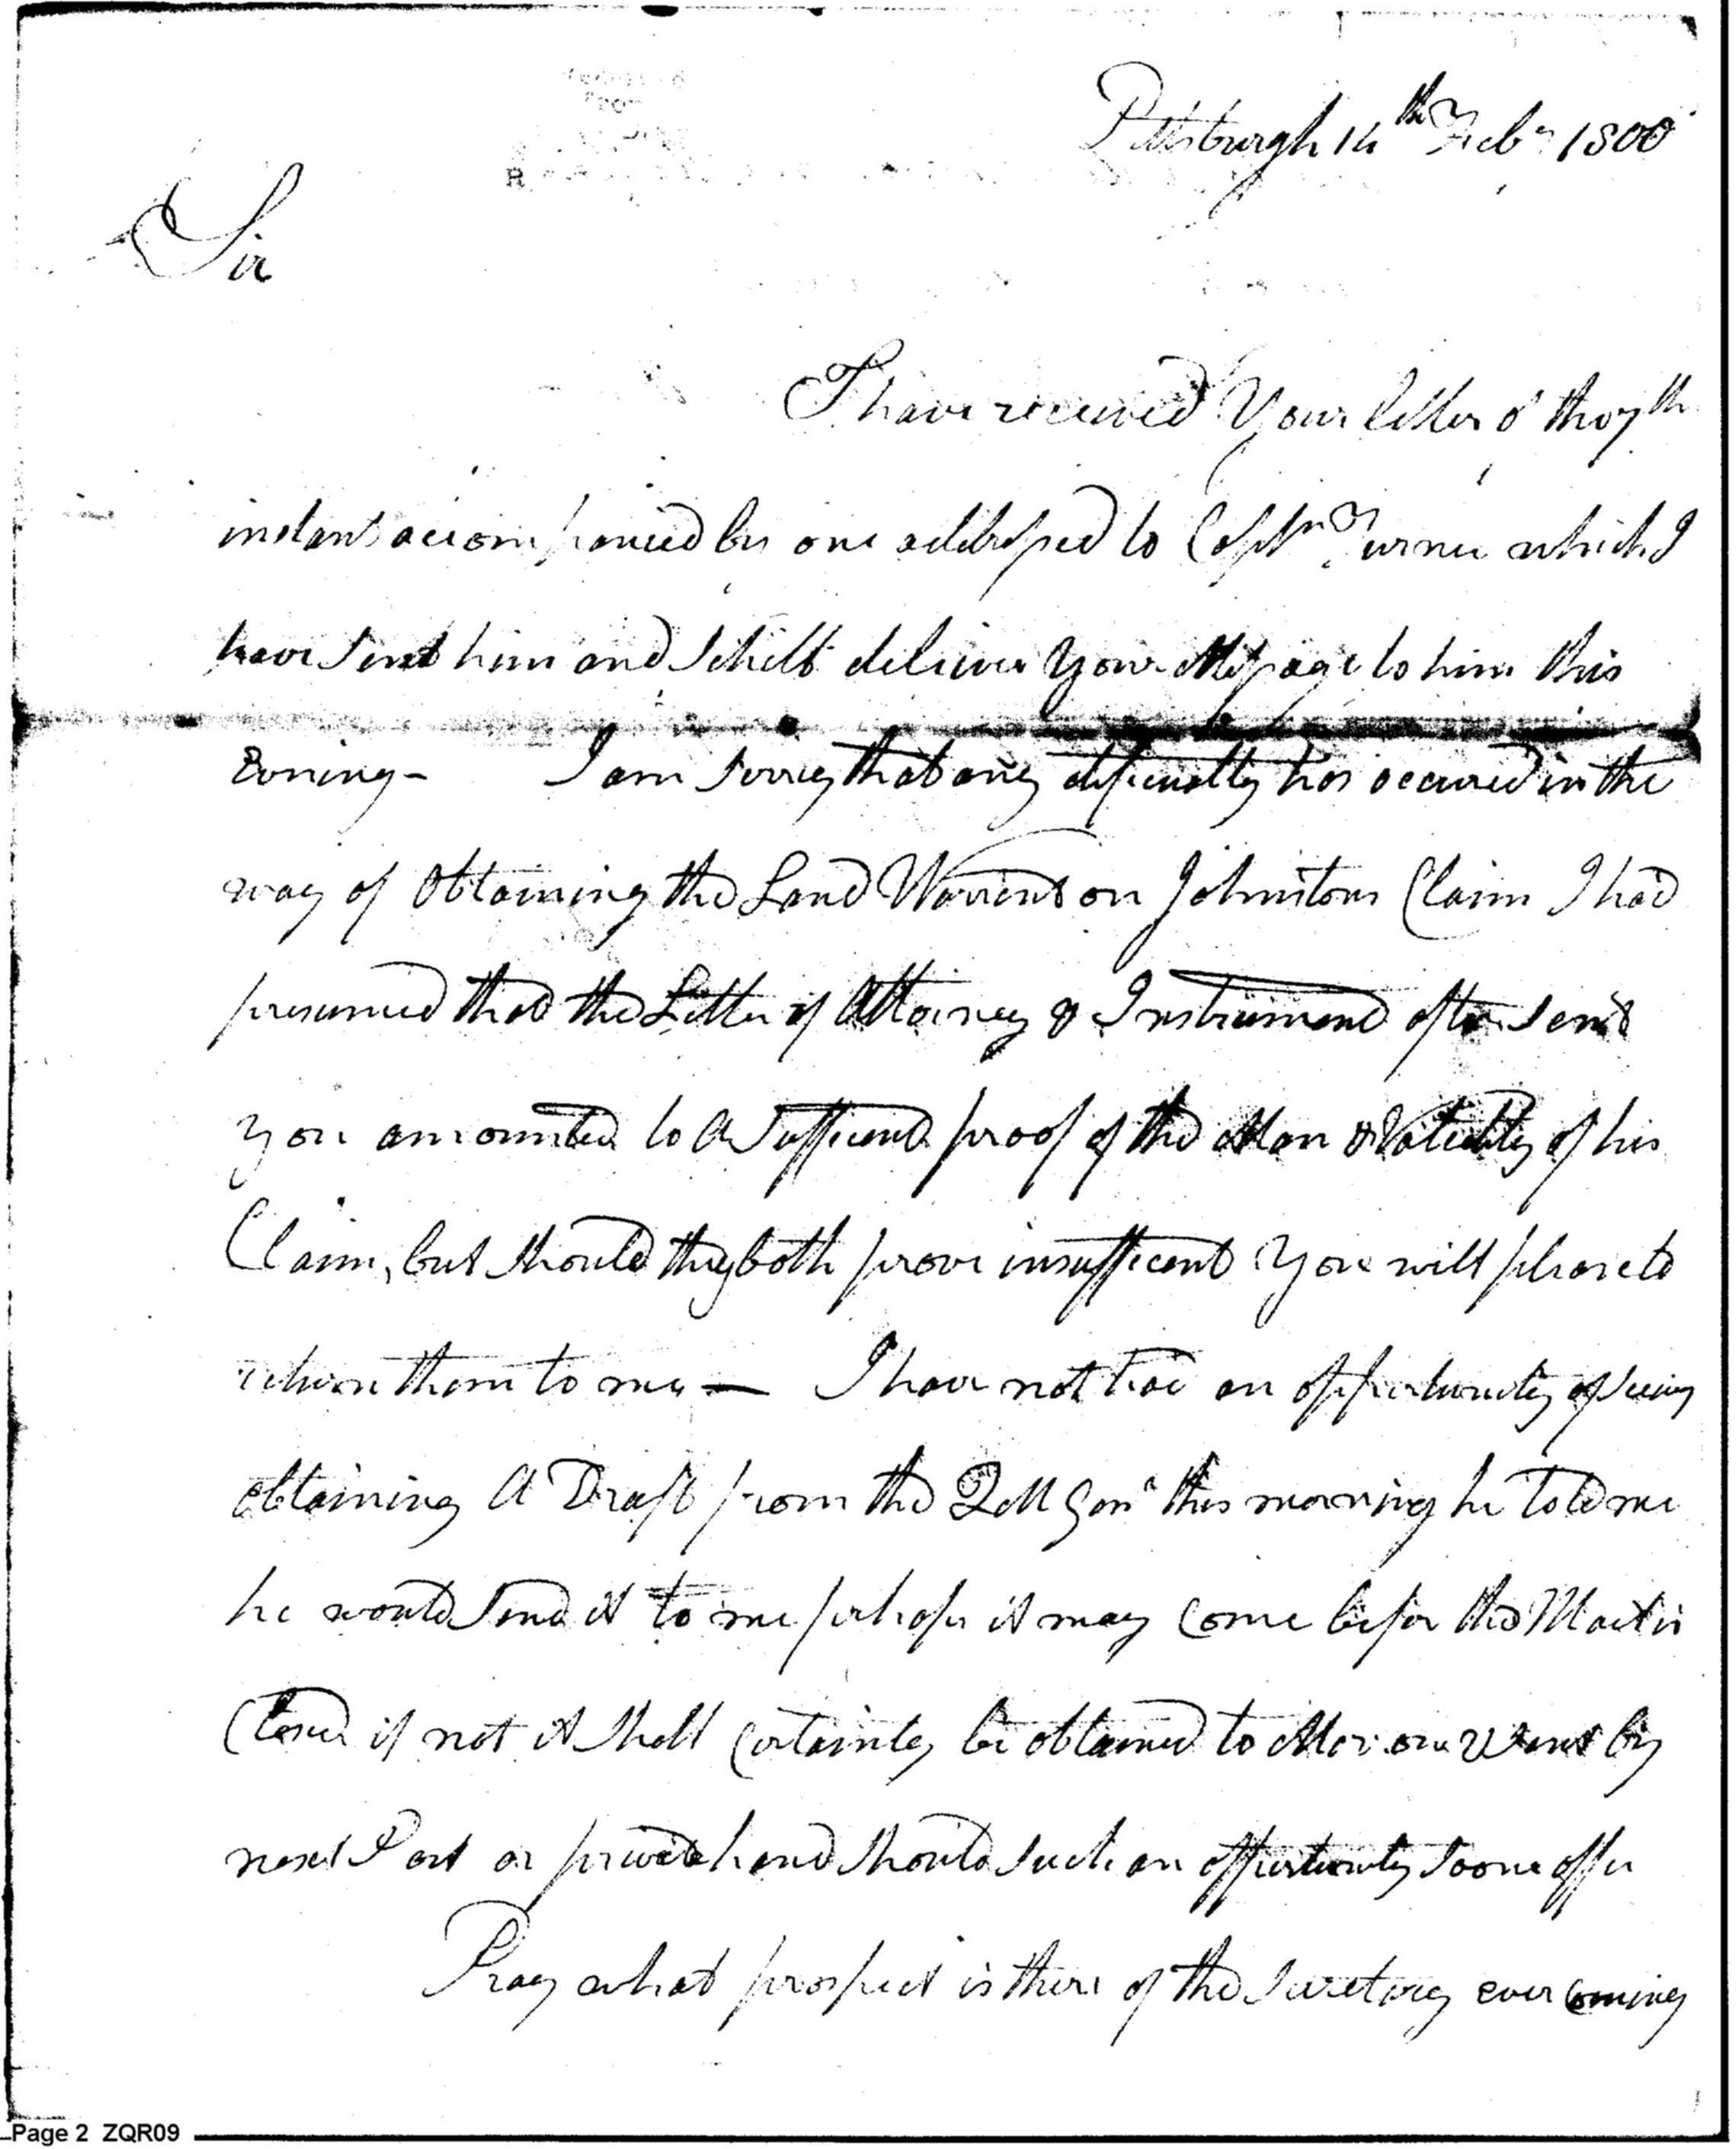 Pittsburgh 14th Feby 1800
Sir
I have received Your letter of the 7th
instant accompanied by one addressed to Captn Turner which I
have sent him and I shall deliver Your Message to him this
Evening — I am sorry that any dificulty has occured in the
way of Obtaining the Land Warrent on Johnstons Claim I had
presumed that the Letter of Attorney & Instrument after sent
You amounted to a Sufficient proof of the Man & Validity of his
Claim, but should they both prove insufficent You will please to
return them to me — I have not had an opportunity of seeing
obtaining A Draft from the QMGen this morning he told me
he would send it to me perhaps it may Come befor the Mail is
Closed if not it shall Certainly be obtained to by
next Post or private hand should such an opportunity soone offer
Pray what prospect is there of the Secretary ever Coming
Page 2 ZQR09